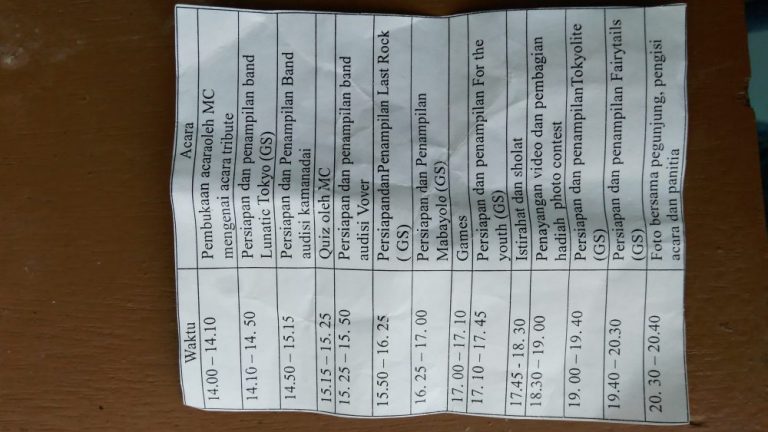 Waktu Acara
14.00 – 14.10 Pembukaan acaraoleh MC
mengenai acara tribute
14.10 – 14. 50 Persiapan dan penampilan band
Lunatic Tokyo (GS)
14.50 – 15.15 Persiapan dan Penampilan Band
audisi kamanadai
15.15 – 15. 25 Quiz oleh MC
15. 25 – 15. 50 Persiapan dan penampilan band
audisi Vover
15.50 – 16. 25 PersiapandanPenampilan Last Rock
( GS)
16. 25 – 17. 00 Persiapan dan Penampilan
Mabayolo (GS)
17. 00 – 17. 10 Games
17. 10 – 17. 45 Persiapan dan penampilan For the
youth (GS)
17.45 - 18. 30 Istirahat dan sholat
18.30 – 19. 00 Penayangan video dan pembagian
hadiah photo contest
19. 00 – 19. 40 Persiapan dan penampilanTokyolite
(GS)
19.40 – 20.30 Persiapan dan penampilan Fairytails
(GS)
20. 30 – 20.40 Foto bersama pegunjung, pengisi
acara dan panitia